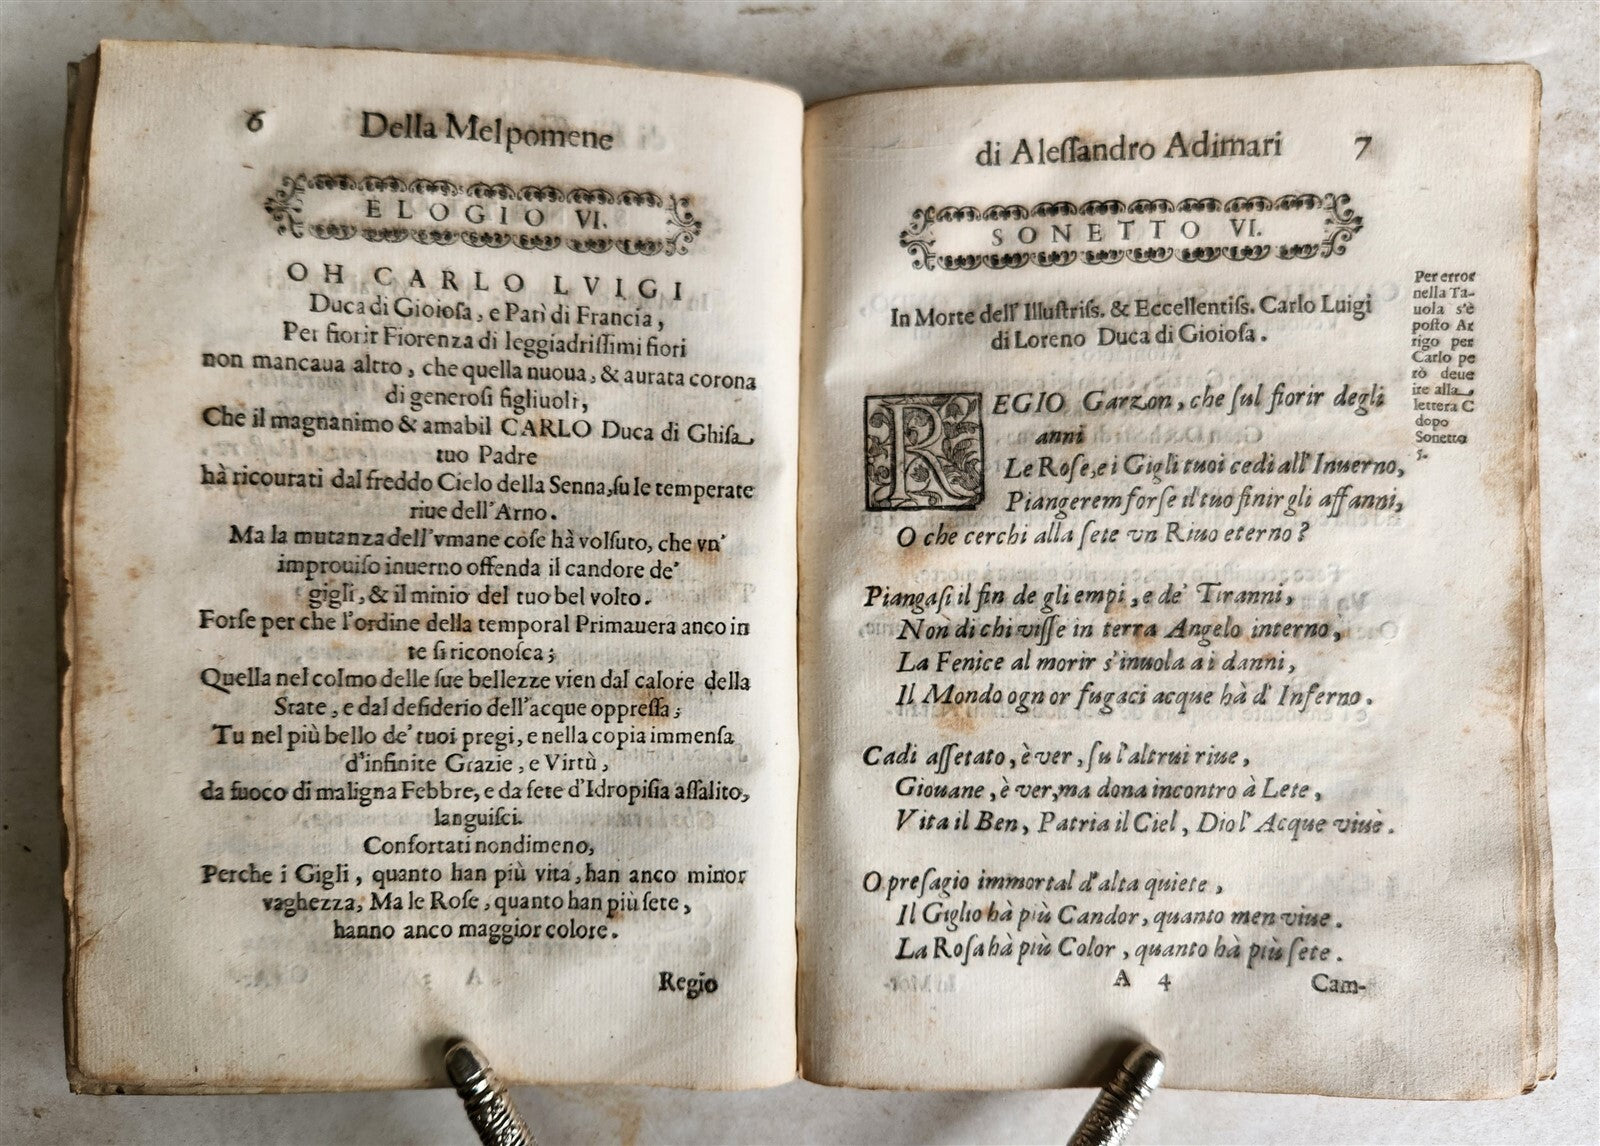 6 Della Melpomene
ELOGIO VI.
OH CARLO LVIGI
Duca di Gioiosa, e Parì di Francia,
Per fiorir Fiorenza di leggiadrissimi fiori
non mancaua altro, che quella nuoua, & aurata corona
di generosi figliuoli,
Che il magnanimo & amabil CARLO Duca di Ghisa
tuo Padre
hà ricourati dal freddo Cielo della Senna, su le temperate
riue dell'Arno.
Ma la mutanza dell'vmane cose hà volsuto, che vn'
improuiso inuerno offenda il candore de'
gigli, & il minio del tuo bel volto.
Forse per che l'ordine della temporal Primauera anco in
te si riconosca;
Quella nel colmo delle sue bellezze vien dal calore della
State, e dal desiderio dell'acque oppressa;
Tu nel più bello de' tuoi pregi, e nella copia immensa
d'infinite Grazie, e Virtù,
da fuoco di maligna Febbre, e da sete d'Idropisia assalito,
languisci.
Confortati nondimeno,
Perche i Gigli, quanto han più vita, han anco minor
vaghezza, Ma le Rose, quanto han più sete,
hanno anco maggior colore.
Regio
di Alessandro Adimari 7
SONETTO VI.
In Morte dell'Illustriss. & Eccellentiss. Carlo Luigi
di Loreno Duca di Gioiosa.
Per error
nella Ta-
uola s'è
posto Ar
rigo per
Carlo pe
rò deue
ire alla
lettera C
dopo
Sonetto
5.
REGIO Garzon, che sul fiorir degli
anni
Le Rose, e i Gigli tuoi cedi all'Inuerno,
Piangerem forse il tuo finir gli affanni,
O che cerchi alla sete vn Riuo eterno?
Piangasi il fin de gli empi, e de' Tiranni,
Non di chi visse in terra Angelo interno,
La Fenice al morir s'inuola ai danni,
Il Mondo ogn or fugaci acque hà d'Inferno.
Cadi assetato, è ver, su l'altrui riue,
Giouane, è ver, ma dona incontro à Lete,
Vita il Ben, Patria il Ciel, Dio l'Acque viuè.
O presagio immortal d'alta quiete,
Il Giglio hà più Candor, quanto men viue.
La Rosa hà più Color, quanto hà più sete.
A 4 Cam-